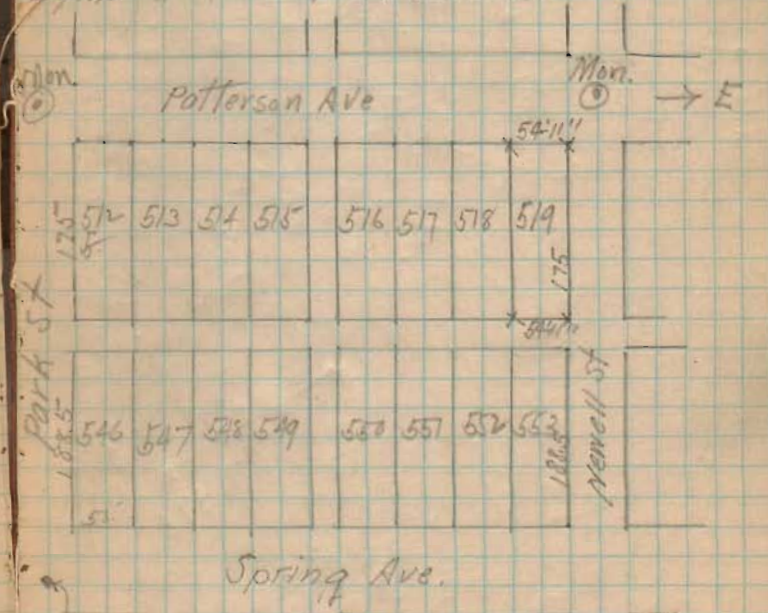 Mon.
Patterson Ave
Mon.
→ E
54'11"
175
512
513
514
515
516
517
518
519
175
54'11"
Park St
Newell St
188.5
546
547
548
549
550
551
552
553
188.5
Spring Ave.